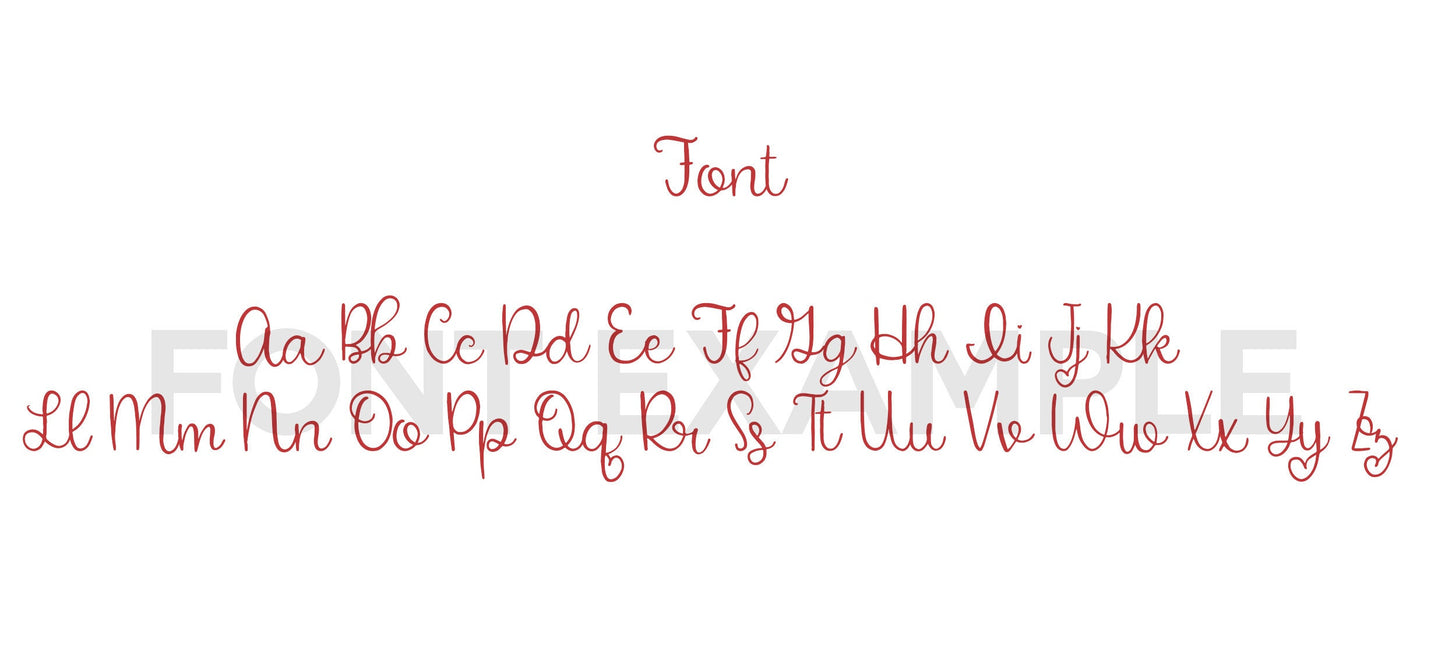 Font
FONT EXAMPLE
Aa Bb Cc Dd Ee Ff Gg Hh Ii Jj Kk
Ll Mm Nn Oo Pp Qq Rr Ss Tt Uu Vv Ww Xx Yy Zz